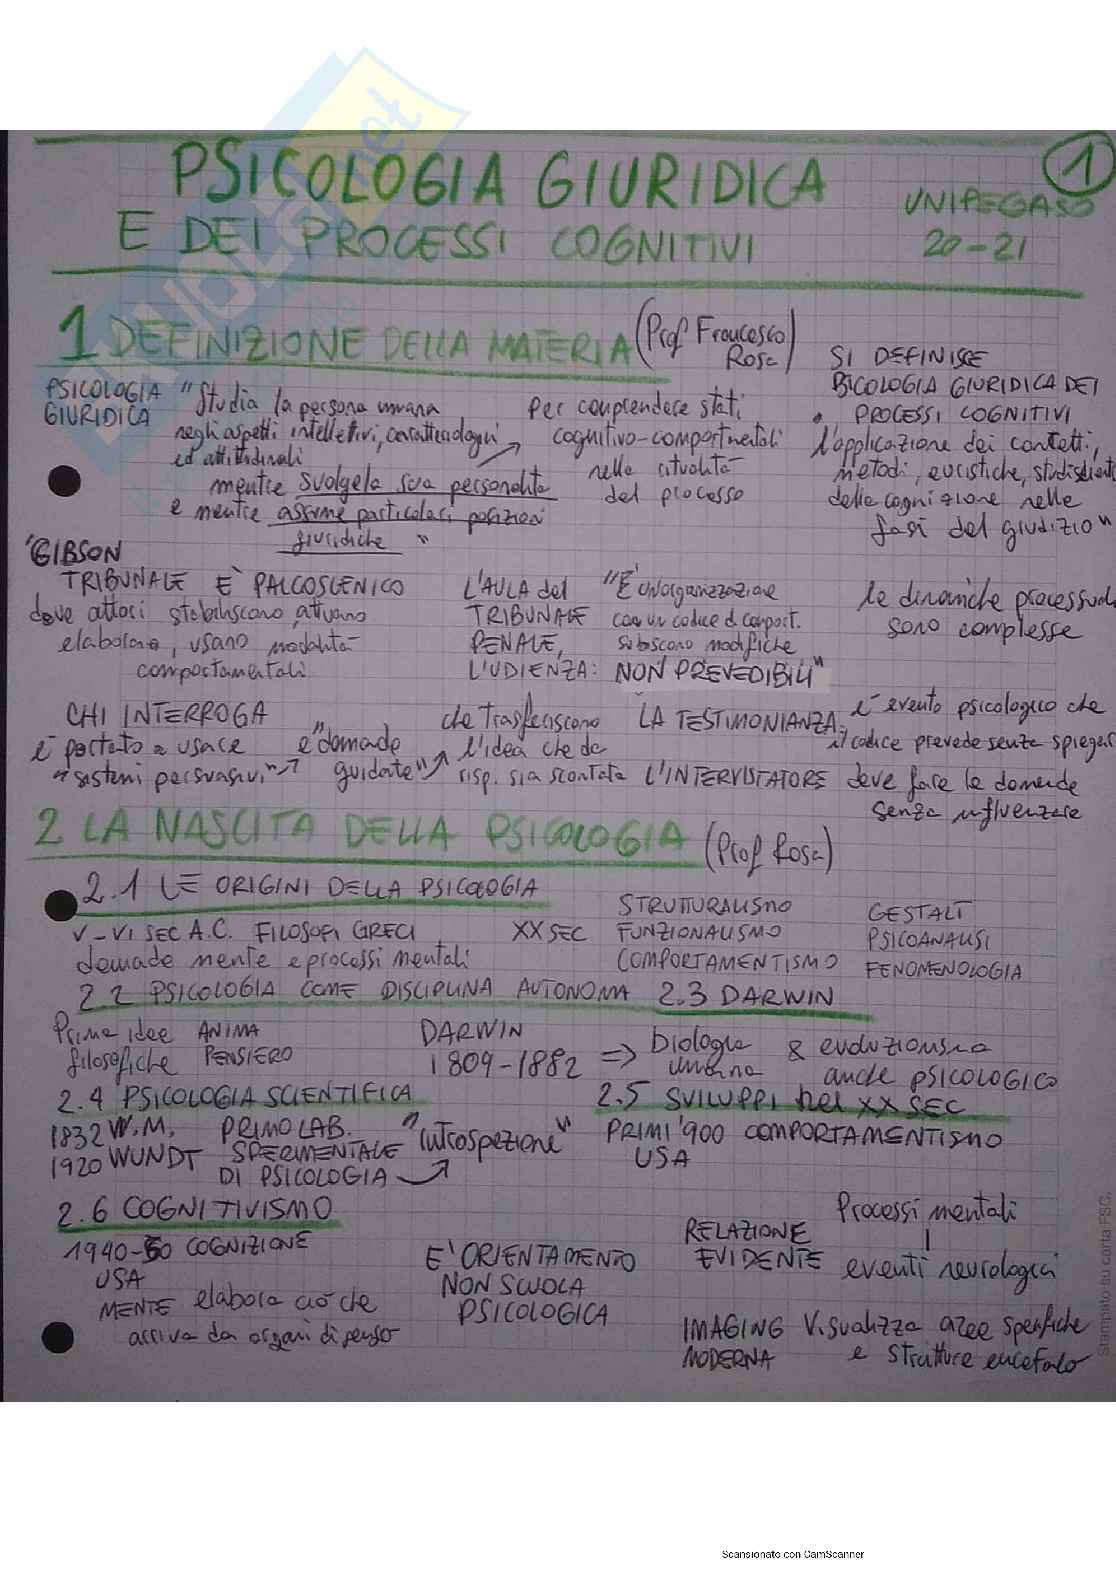 1
PSICOLOGIA GIURIDICA
E DEI PROCESSI COGNITIVI
UNIPEGASO
20-21
1 DEFINIZIONE DELLA MATERIA (Prof Francesco Rosa)
PSICOLOGIA GIURIDICA
"Studia la persona umana
negli aspetti intellettivi, caratteriologici
ed attitudinali
mentre svolge la sua personalità
e mentre assume particolari posizioni
giuridiche"
Per comprendere stati
cognitivo-comportmentali
nella ritualità
del processo
SI DEFINISCE
PSICOLOGIA GIURIDICA DEI
PROCESSI COGNITIVI
l'applicazione dei concetti,
metodi, euristiche, studi
della cognizione nelle
fasi del giudizio"
"GIBSON
TRIBUNALE È PALCOSCENICO
dove attori stabiliscono, attivano
elaborano, usano modalità
comportamentali
L'AULA del
TRIBUNALE
PENALE,
L'UDIENZA:
"È un'organizzazione
con un codice d comport.
subiscono modifiche
NON PREVEDIBILI"
le dinamiche processuali
sono complesse
CHI INTERROGA
è portato a usare
"sistemi persuasivi"
e "domade
guidate"
che trasferiscono
l'idea che da
risp. sia scontata
LA TESTIMONIANZA: è evento psicologico che
il codice prevede senza spiegar
L'INTERVISTATORE deve fare le domande
senza influenzare
2 LA NASCITA DELLA PSICOLOGIA (Prof Rosa)
2.1 LE ORIGINI DELLA PSICOLOGIA
V-VI SEC A.C. FILOSOFI GRECI
domade mente e processi mentali
XX SEC
STRUTTURALISMO
FUNZIONALISMO
COMPORTAMENTISMO
GESTALT
PSICOANALISI
FENOMENOLOGIA
2.2 PSICOLOGIA COME DISCIPLINA AUTONOMA
2.3 DARWIN
Prime idee ANIMA
filosofiche PENSIERO
DARWIN
1809-1882 =>
biologia
umana
& evoluzionismo
anche psicologico
2.4 PSICOLOGIA SCIENTIFICA
2.5 SVILUPPI nel XX SEC
1832 W.M.
1920 WUNDT
PRIMO LAB.
SPERIMENTALE
DI PSICOLOGIA
"introspezione"
PRIMI '900 COMPORTAMENTISMO
USA
2.6 COGNITIVISMO
1940-50 COGNIZIONE
USA
MENTE elabora ciò che
arriva da organi di senso
E' ORIENTAMENTO
NON SCUOLA
PSICOLOGICA
RELAZIONE
EVIDENTE
Processi mentali
eventi neurologici
IMAGING
MODERNA
Visualizza aree specifiche
e strutture encefalo
Stampato su carta FSC.
Scansionato con CamScanner